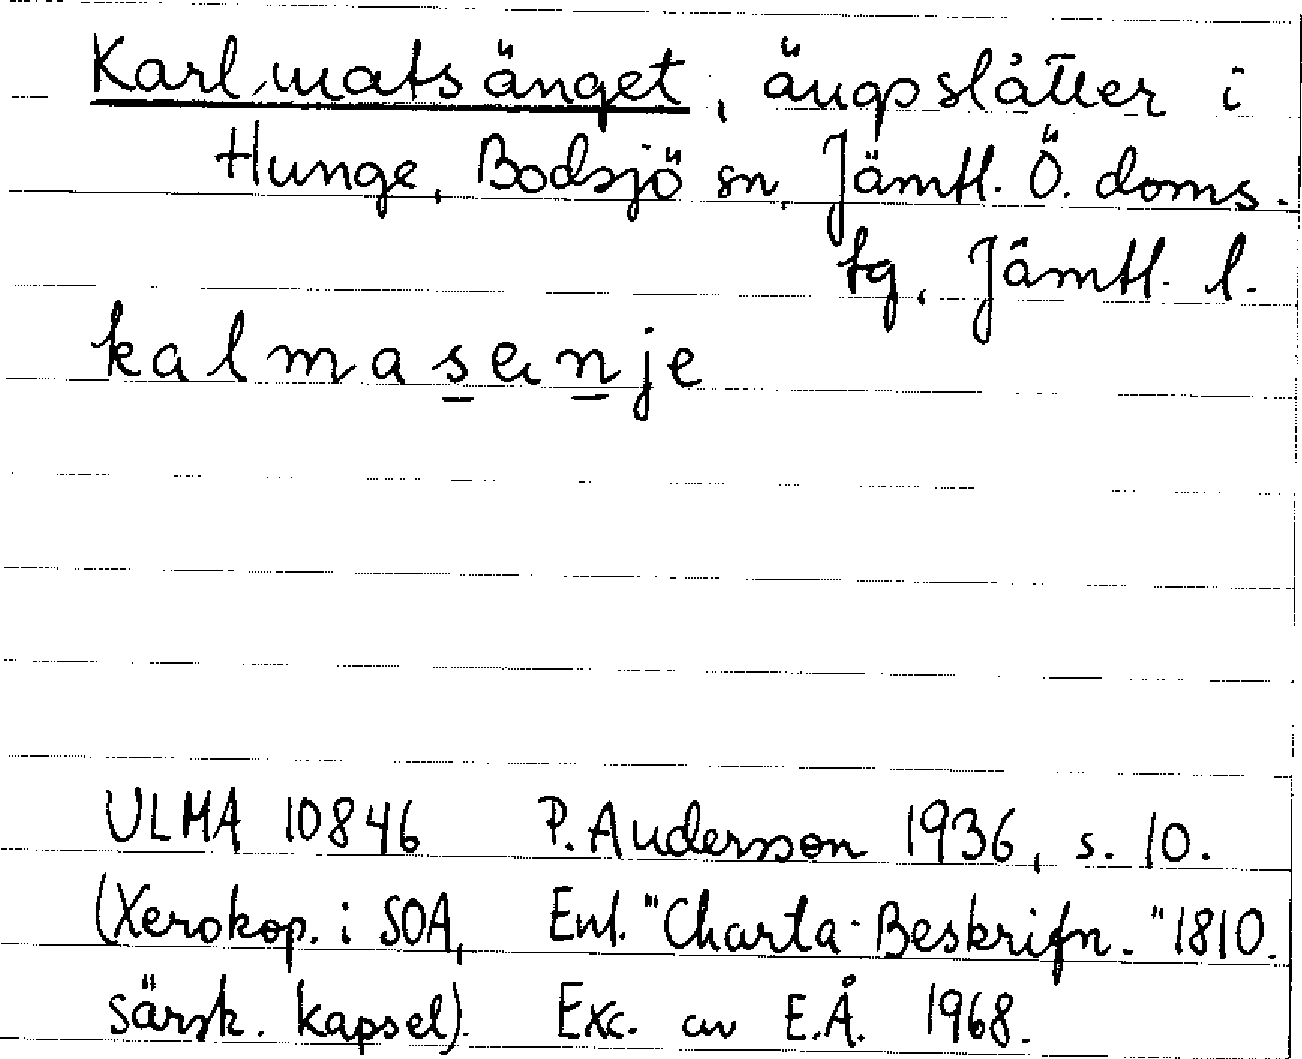 Karlmatsänget, ängsslåtter i
Hunge, Bodsjö sn, Jämtl. Ö. doms.
tg, Jämtl. l.
kalmasenje
ULMA 10846 P. Andersson 1936, s. 10.
(Xerokop. i SOA, Enl. "Charta-Beskrifn." 1810.
särsk. kapsel). Exc. av E.Å. 1968.